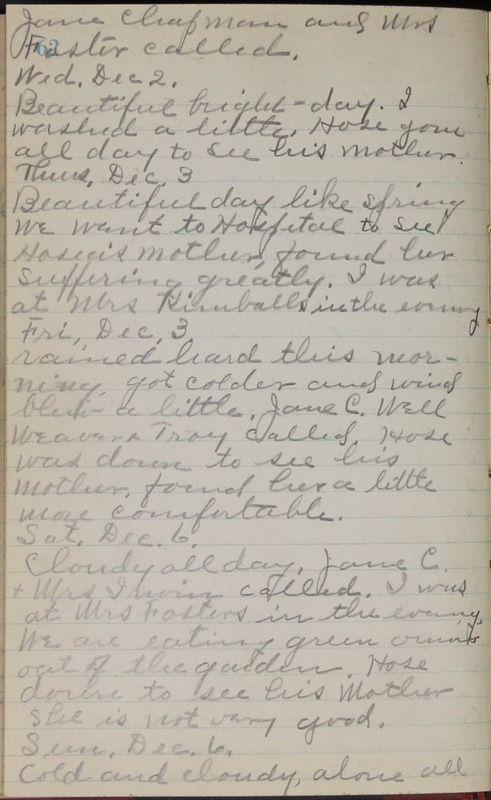 Jane Chapman and Mrs
62
Foster called.
Wed. Dec 2.
Beautiful bright-day. I
washed a little, Hose gone
all day to see his mother.
Thurs, Dec, 3
Beautiful day like spring
We went to Hospital to see
Hosea's mother, found her
suffering greatly. I was
at Mrs Kimballs in the evening
Fri, Dec, 3
rained hard this mor-
ning, got colder and wind
blew a little. Jane C. Well
Weaver & Troy called. Hose
was down to see his
mother, found her a little
more comfortable.
Sat. Dec. 6.
Cloudy all day, Jane C.
+ Mrs Irwin called. I was
at Mrs Fosters in the evening,
We are eating green
out of the garden. Hose
down to see his Mother
She is not very good.
Sun. Dec. 6.
Cold and cloudy, alone all